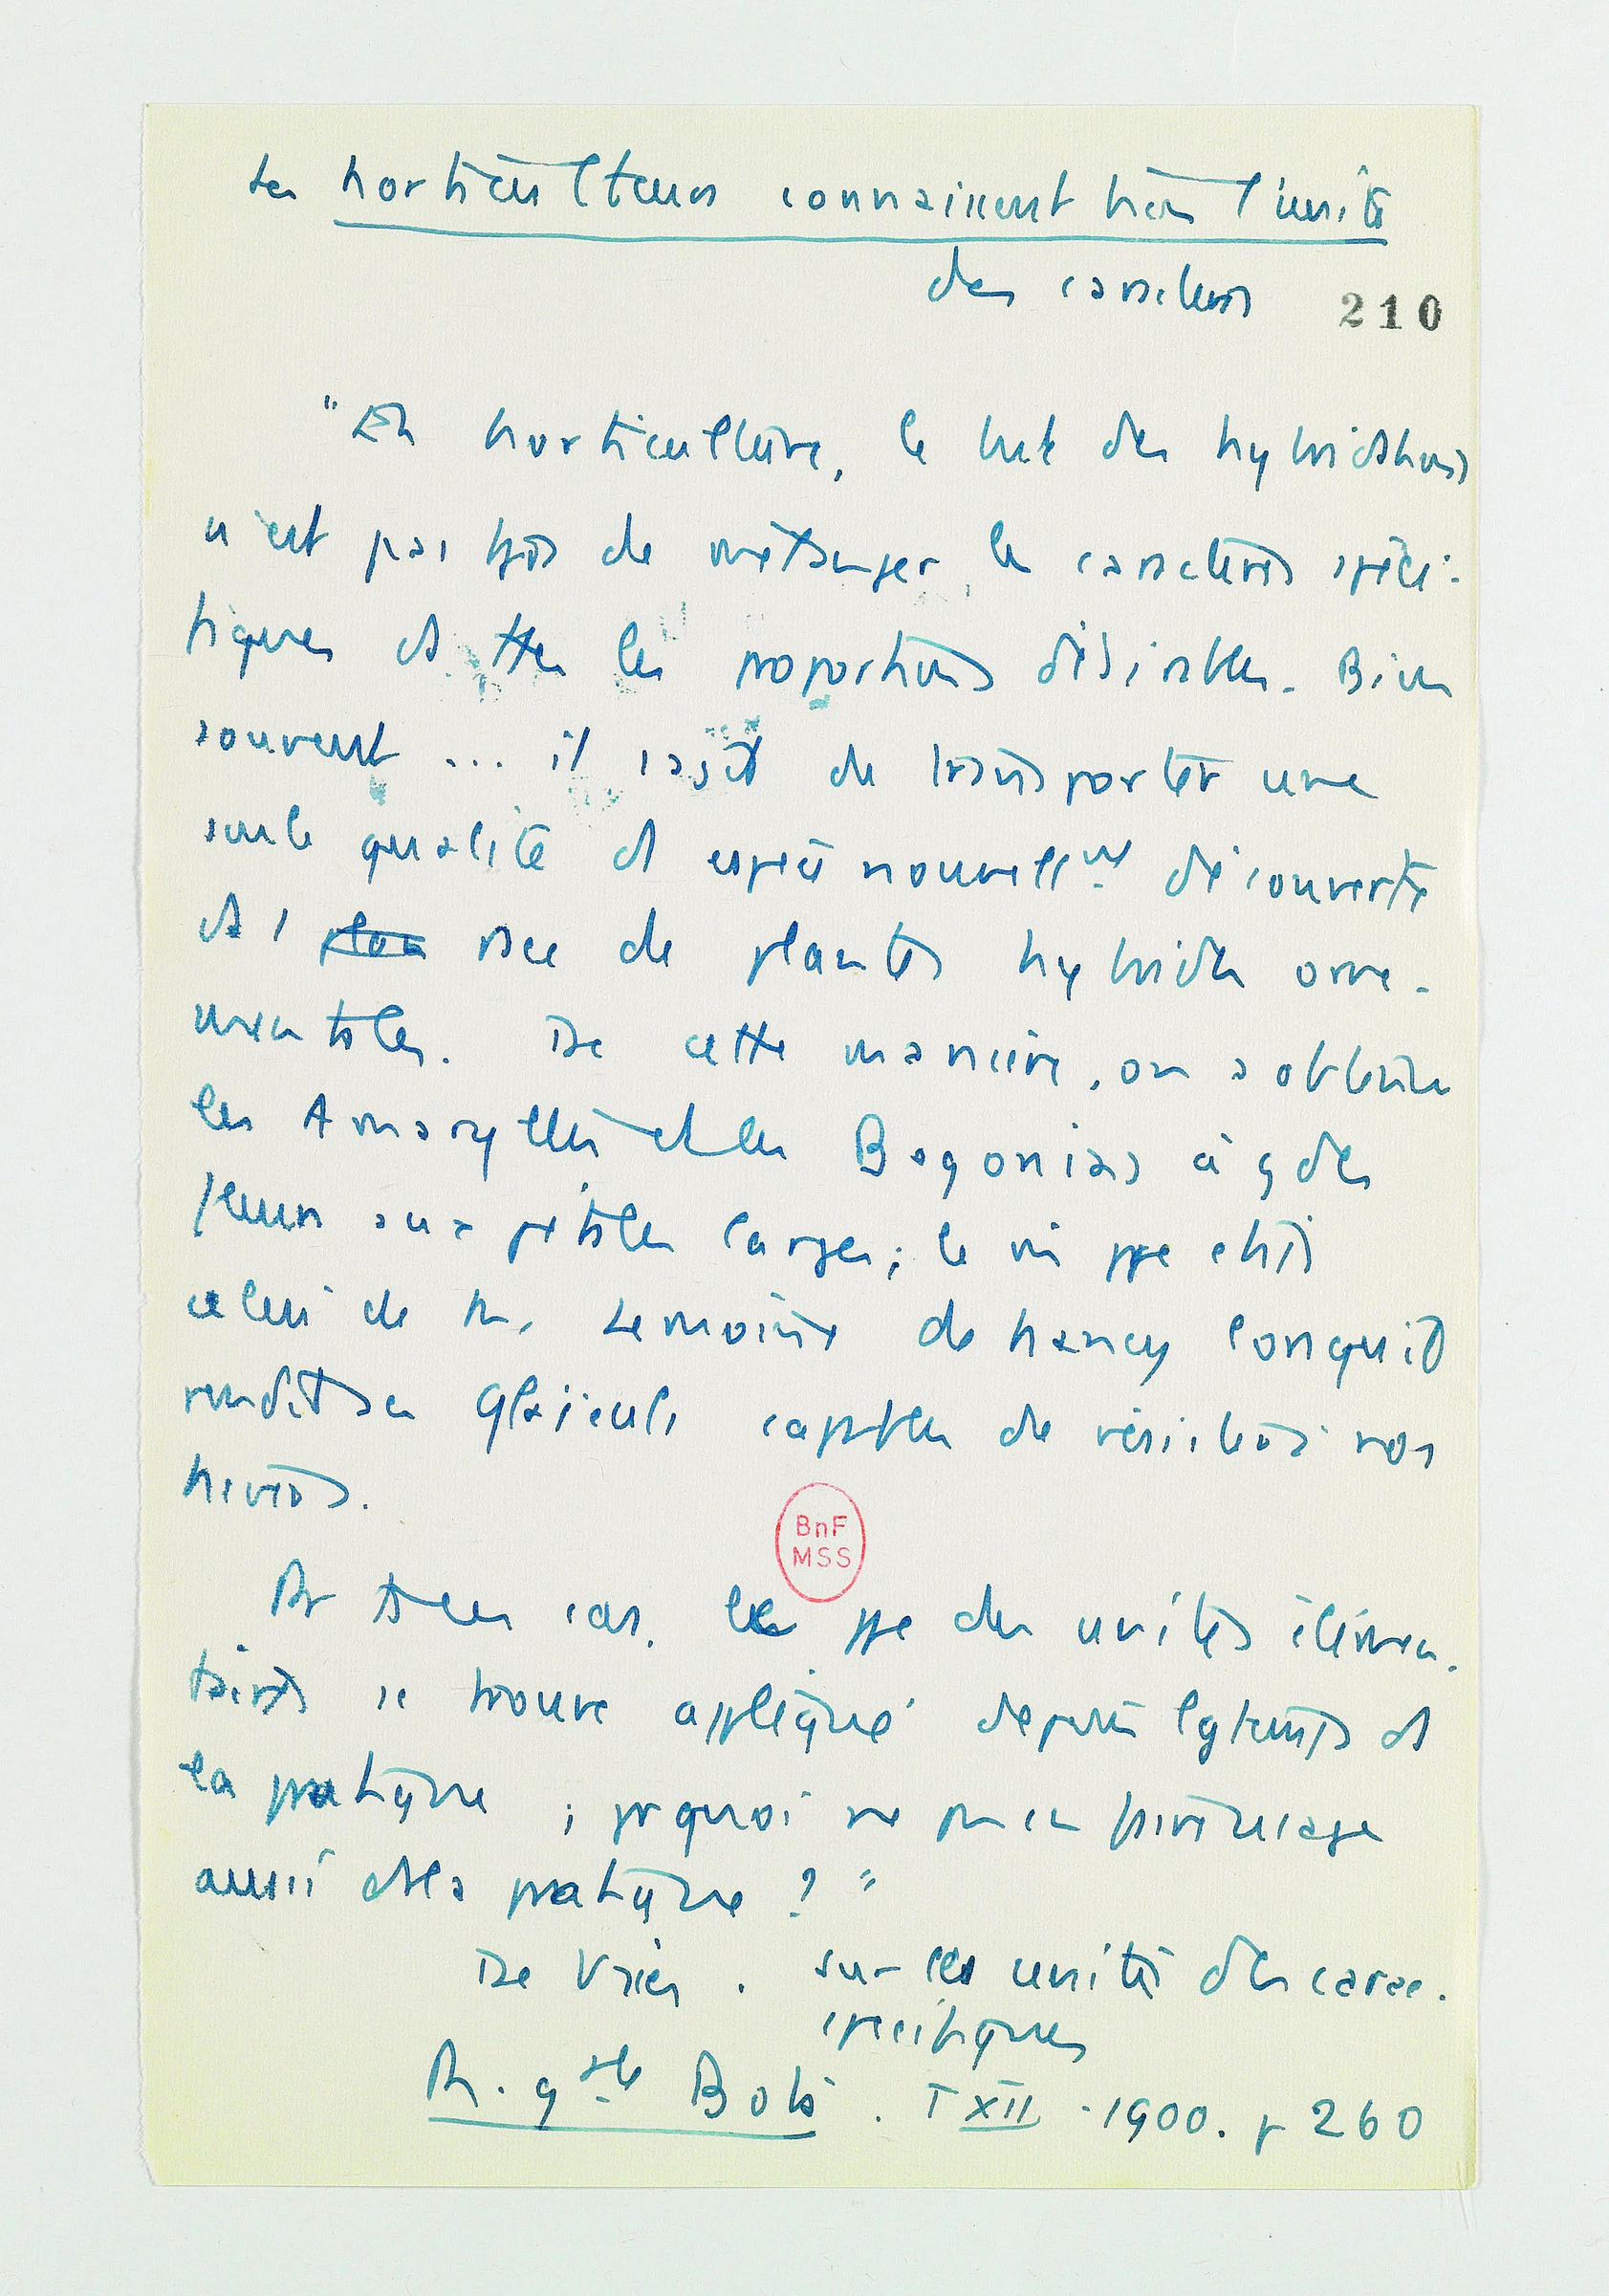 Les horticulteurs connaissent bien l'unité
des caractères
210
"En horticulture, le but des hybridations
n'est pas tjrs de mélanger les caractères spéci-
fiques ds ttes les proportions désirables. Bien
souvent ... il s'agit de transporter une
seule qualité d'1 espèce nouvellmt découverte
ds 1 race de plantes hybrides orne-
mentales. De cette manière, on a obtenu
les Amaryllis et les Begonias à gdes
fleurs aux pétales larges; le m ppe était
celui de M. Lemoine de Nancy lorsqu'il
rendit ses Glaïeuls capables de résister à nos
hivers.
Ds ts ces cas, le ppe des unités élémen-
taires se trouve appliqué depuis lgtemps ds
la pratique ; prquoi ne pas en
aussi ds la pratique ? "
De Vries . Sur les unités des carac.
spécifiques
R. gale Bota . T XII . 1900. p 260
BnF
MSS